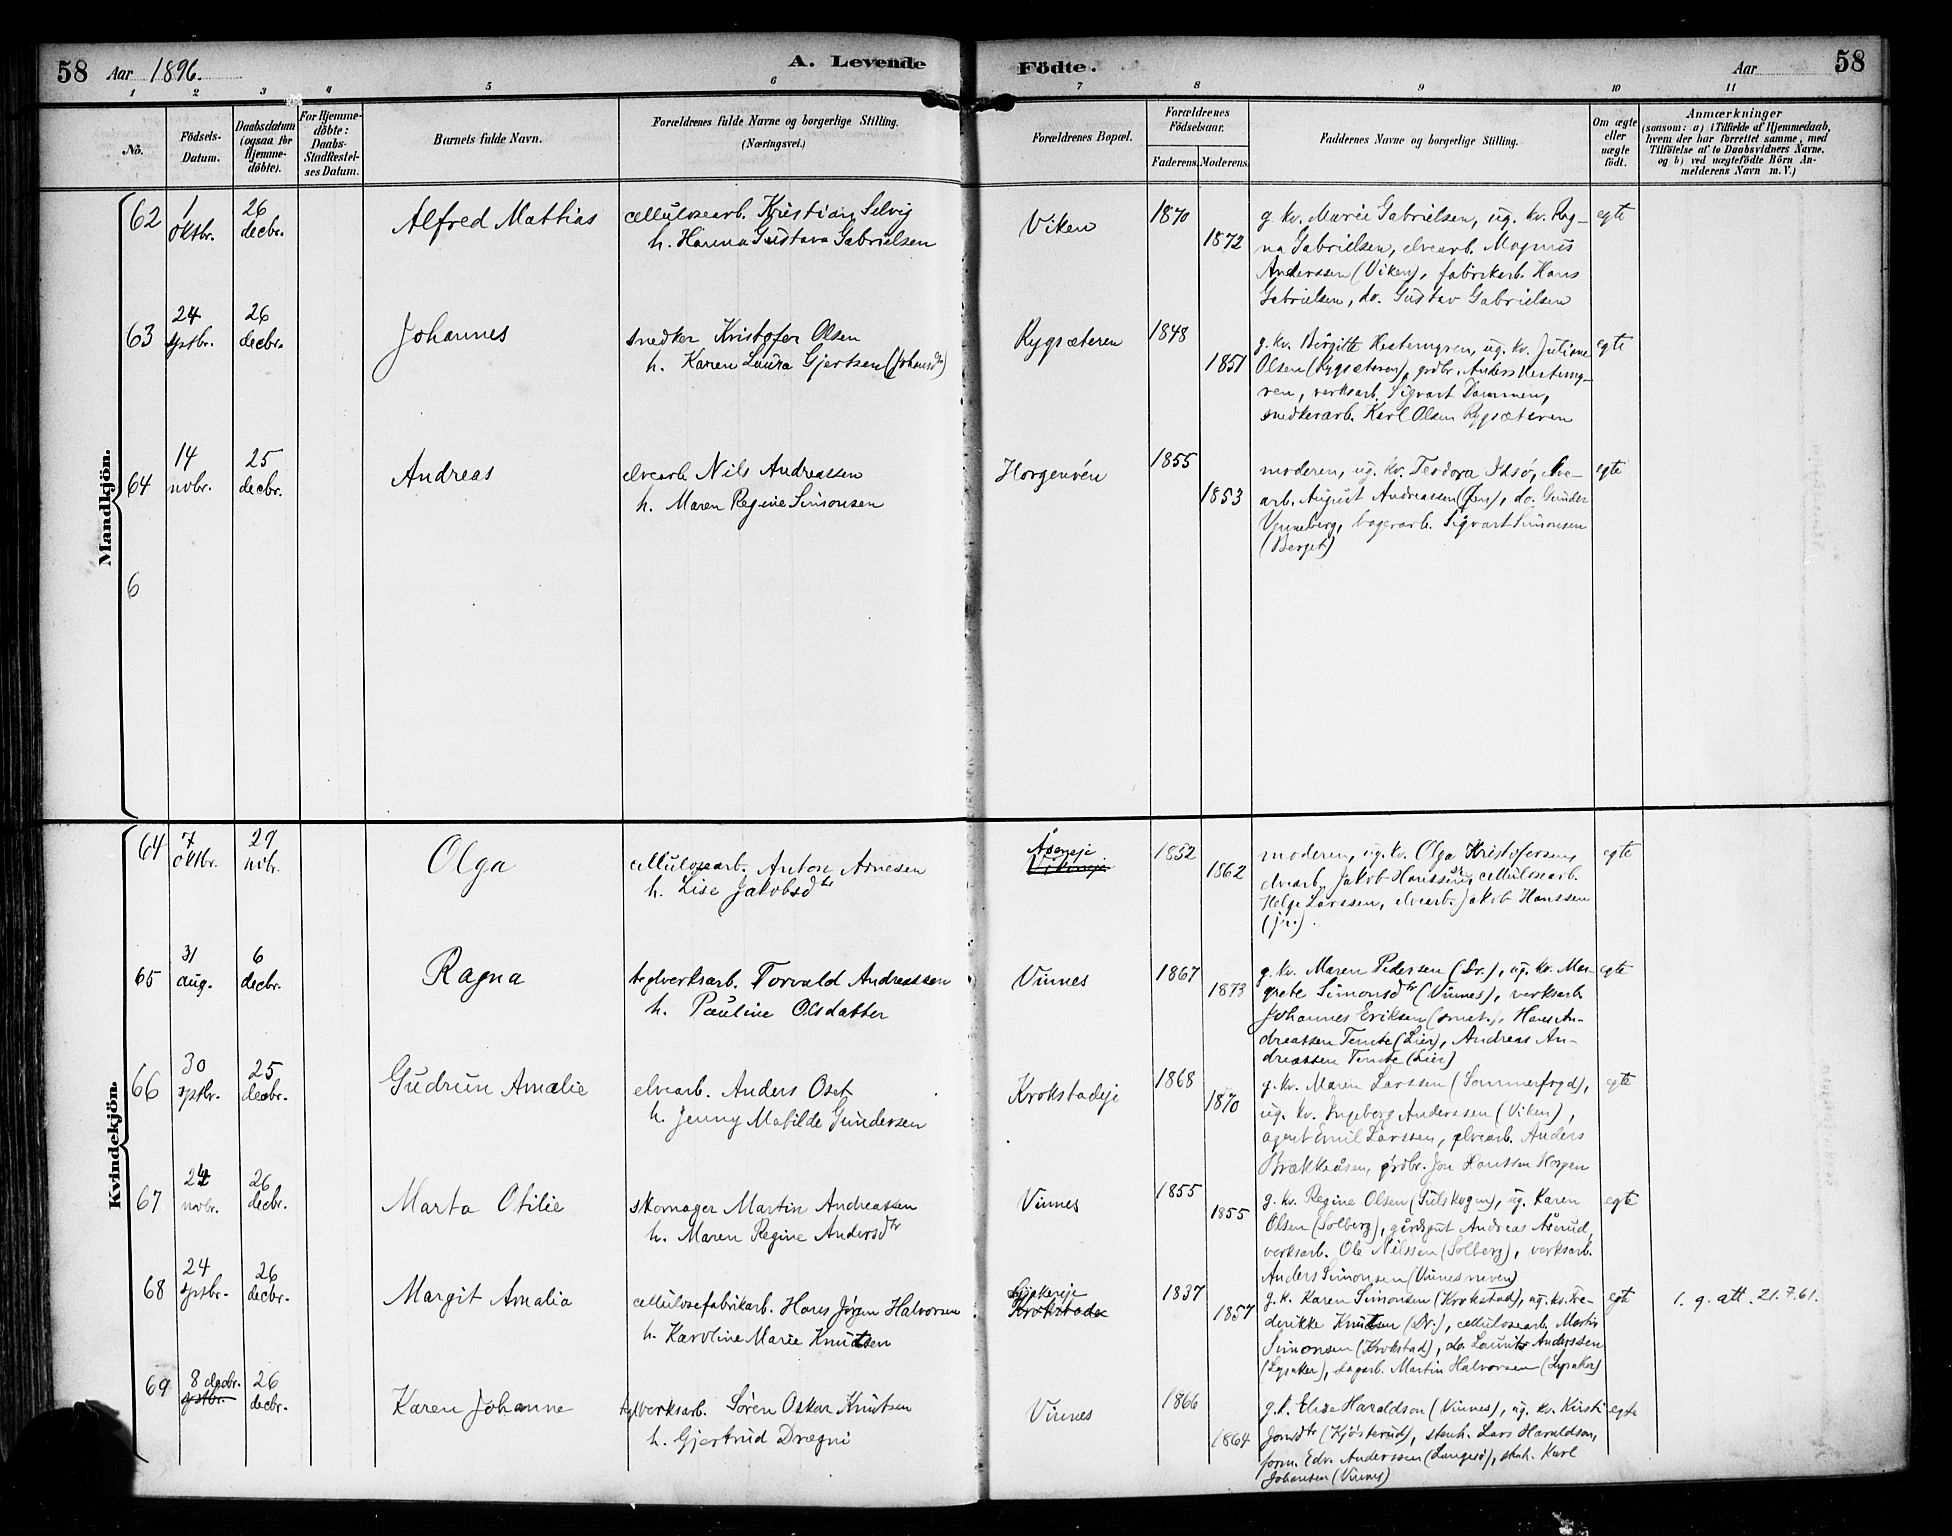 58 Aar 1896. A. Levende Födte. Aar 58
1 2 3 4 5 6 7 8 9 10 11
No.
Födsels-Datum.
Daabsdatum (ogsaa for Hjemme-döbte).
For Hjemme-döbte: Daabs-Stadfæstel-ses Datum.
Barnets fulde Navn.
Forældrenes fulde Navne og borgerlige Stilling.
(Næringsvei.)
Forældrenes Bopæl.
Forældrenes Födselsaar.
Faderens. Moderens.
Faddernes Navne og borgerlige Stilling.
Om ægte eller uægte födt.
Anmærkninger
(saasom: a) i Tilfælde af Hjemmedaab,
hvem der har forrettet samme, med
Tilföielse af to Daabsvidners Navne,
og b) ved uægtefödte Börn An-
melderens Navn m. V.)
Mandkjön.
62 1 oktbr. 26 decbr. Alfred Mathias cellulosearb. Kristian Selvig
h. Hanna Gustava Gabrielsen
Viken 1870 1872
g. kv. Marie Gabrielsen, ug. kv. Rag-
na Gabrielsen, elvearb. Magnus
Anderssen (Viken), fabrikarb. Hans
Gabrielsen, do. Gustav Gabrielsen
egte
63 24 sptbr. 26 decbr. Johannes snedker Kristofer Olsen
h. Karen Laura Gjertsen (Johansd)
Rygsæteren 1848 1851
g. kv. Birgitte Hestemyren, ug. kv. Juliane
Olsen (Rygsæteren), grdbr. Anders Hestemy-
ren, verksarb. Sigvart Dammen,
snedkerarb. Karl Olsen Rygsæteren
egte
64 14 novbr. 25 decbr. Andreas elvearb Nils Andreassen
h. Maren Regine Simonsen
Horgenvén 1855 1853
moderen, ug. kv. Teodora elve-
arb. August Andreassen do. Gunder
Venneberg, bagerarb. Sigvart Simonsen
(Berget)
egte
6
Kvindekjön.
64 7 oktbr. 29 novbr. Olga cellulosearb. Anton Arnesen
h. Lise Jakobsdtr
Åseneje
Vikeneje
1852 1862
moderen, ug. kv. Olga Kristofersen,
elvearb. Jakob Hanssen, cellulosearb.
Helge Larssen, elvearb. Jakob Hanssen
(jr.).
egte
65 31 aug. 6 decbr. Ragna teglverksarb. Torvald Andreassen
h. Pauline Olsdatter
Vinnes 1867 1873
g. kv. Maren Pedersen (Dr.), ug. kv. Mar-
grete Simonsdtr (Vinnes), verksarb
Johannes Eriksen Hans An-
dreassen Temte (Lier), Andreas An-
dreassen Temte (Lier)
egte
66 30 sptbr. 25 decbr. Gudrun Amalie elvearb. Anders Oset
h. Jenny Matilde Gundersen
Krokstadeje 1868 1870
g. kv. Maren Larssen (Sommerfryd),
ug. kv. Ingeborg Anderssen (Viken),
agent Emil Larssen, elvearb. Anders
Brækkeåsen, grdbr. Jon Hanssen Horgen
egte
67 24 novbr. 26 decbr. Marta Otilie skomager Martin Andreassen
h. Maren Regine Andersdtr
Vinnes 1855 1855
g. kv. Regine Olsen (Gulskogen), ug. Karen
Olsen (Solberg), gårdsgut Andreas Åserud,
verksarb. Ole Nilssen (Solberg), verksarb.
Anders Simonsen (Vinnesneven)
egte
68 24 sptbr. 26 decbr. Margit Amalia cellulosefabrikarb. Hans Jørgen Halvorsen
h. Karoline Marie Knutsen
Krokstade 1837 1857
g. k. Karen Simonsen (Krokstad), ug. kv. Fre-
derikke Knutsen (Dr.), cellulosearb. Martin
Simonsen (Krokstad), do. Laurits Anderssen
(Lysaker), dagarb. Martin Halvorsen (Lysaker)
egte 1. g. att. 21.7.61.
69 8 decbr. sptbr. 26 decbr. Karen Johanne teglverksarb. Søren Oskar Knutsen
h. Gjertrud Drægni
Vinnes 1866 1864
g. k. Elise Haraldson (Vinnes), ug. kv. Kirsti
Jonsdtr (Kjøsterud), stenh. Lars Haraldson,
form. Edv. Anderssen stenh. Karl
Johansen (Vinnes)
egte